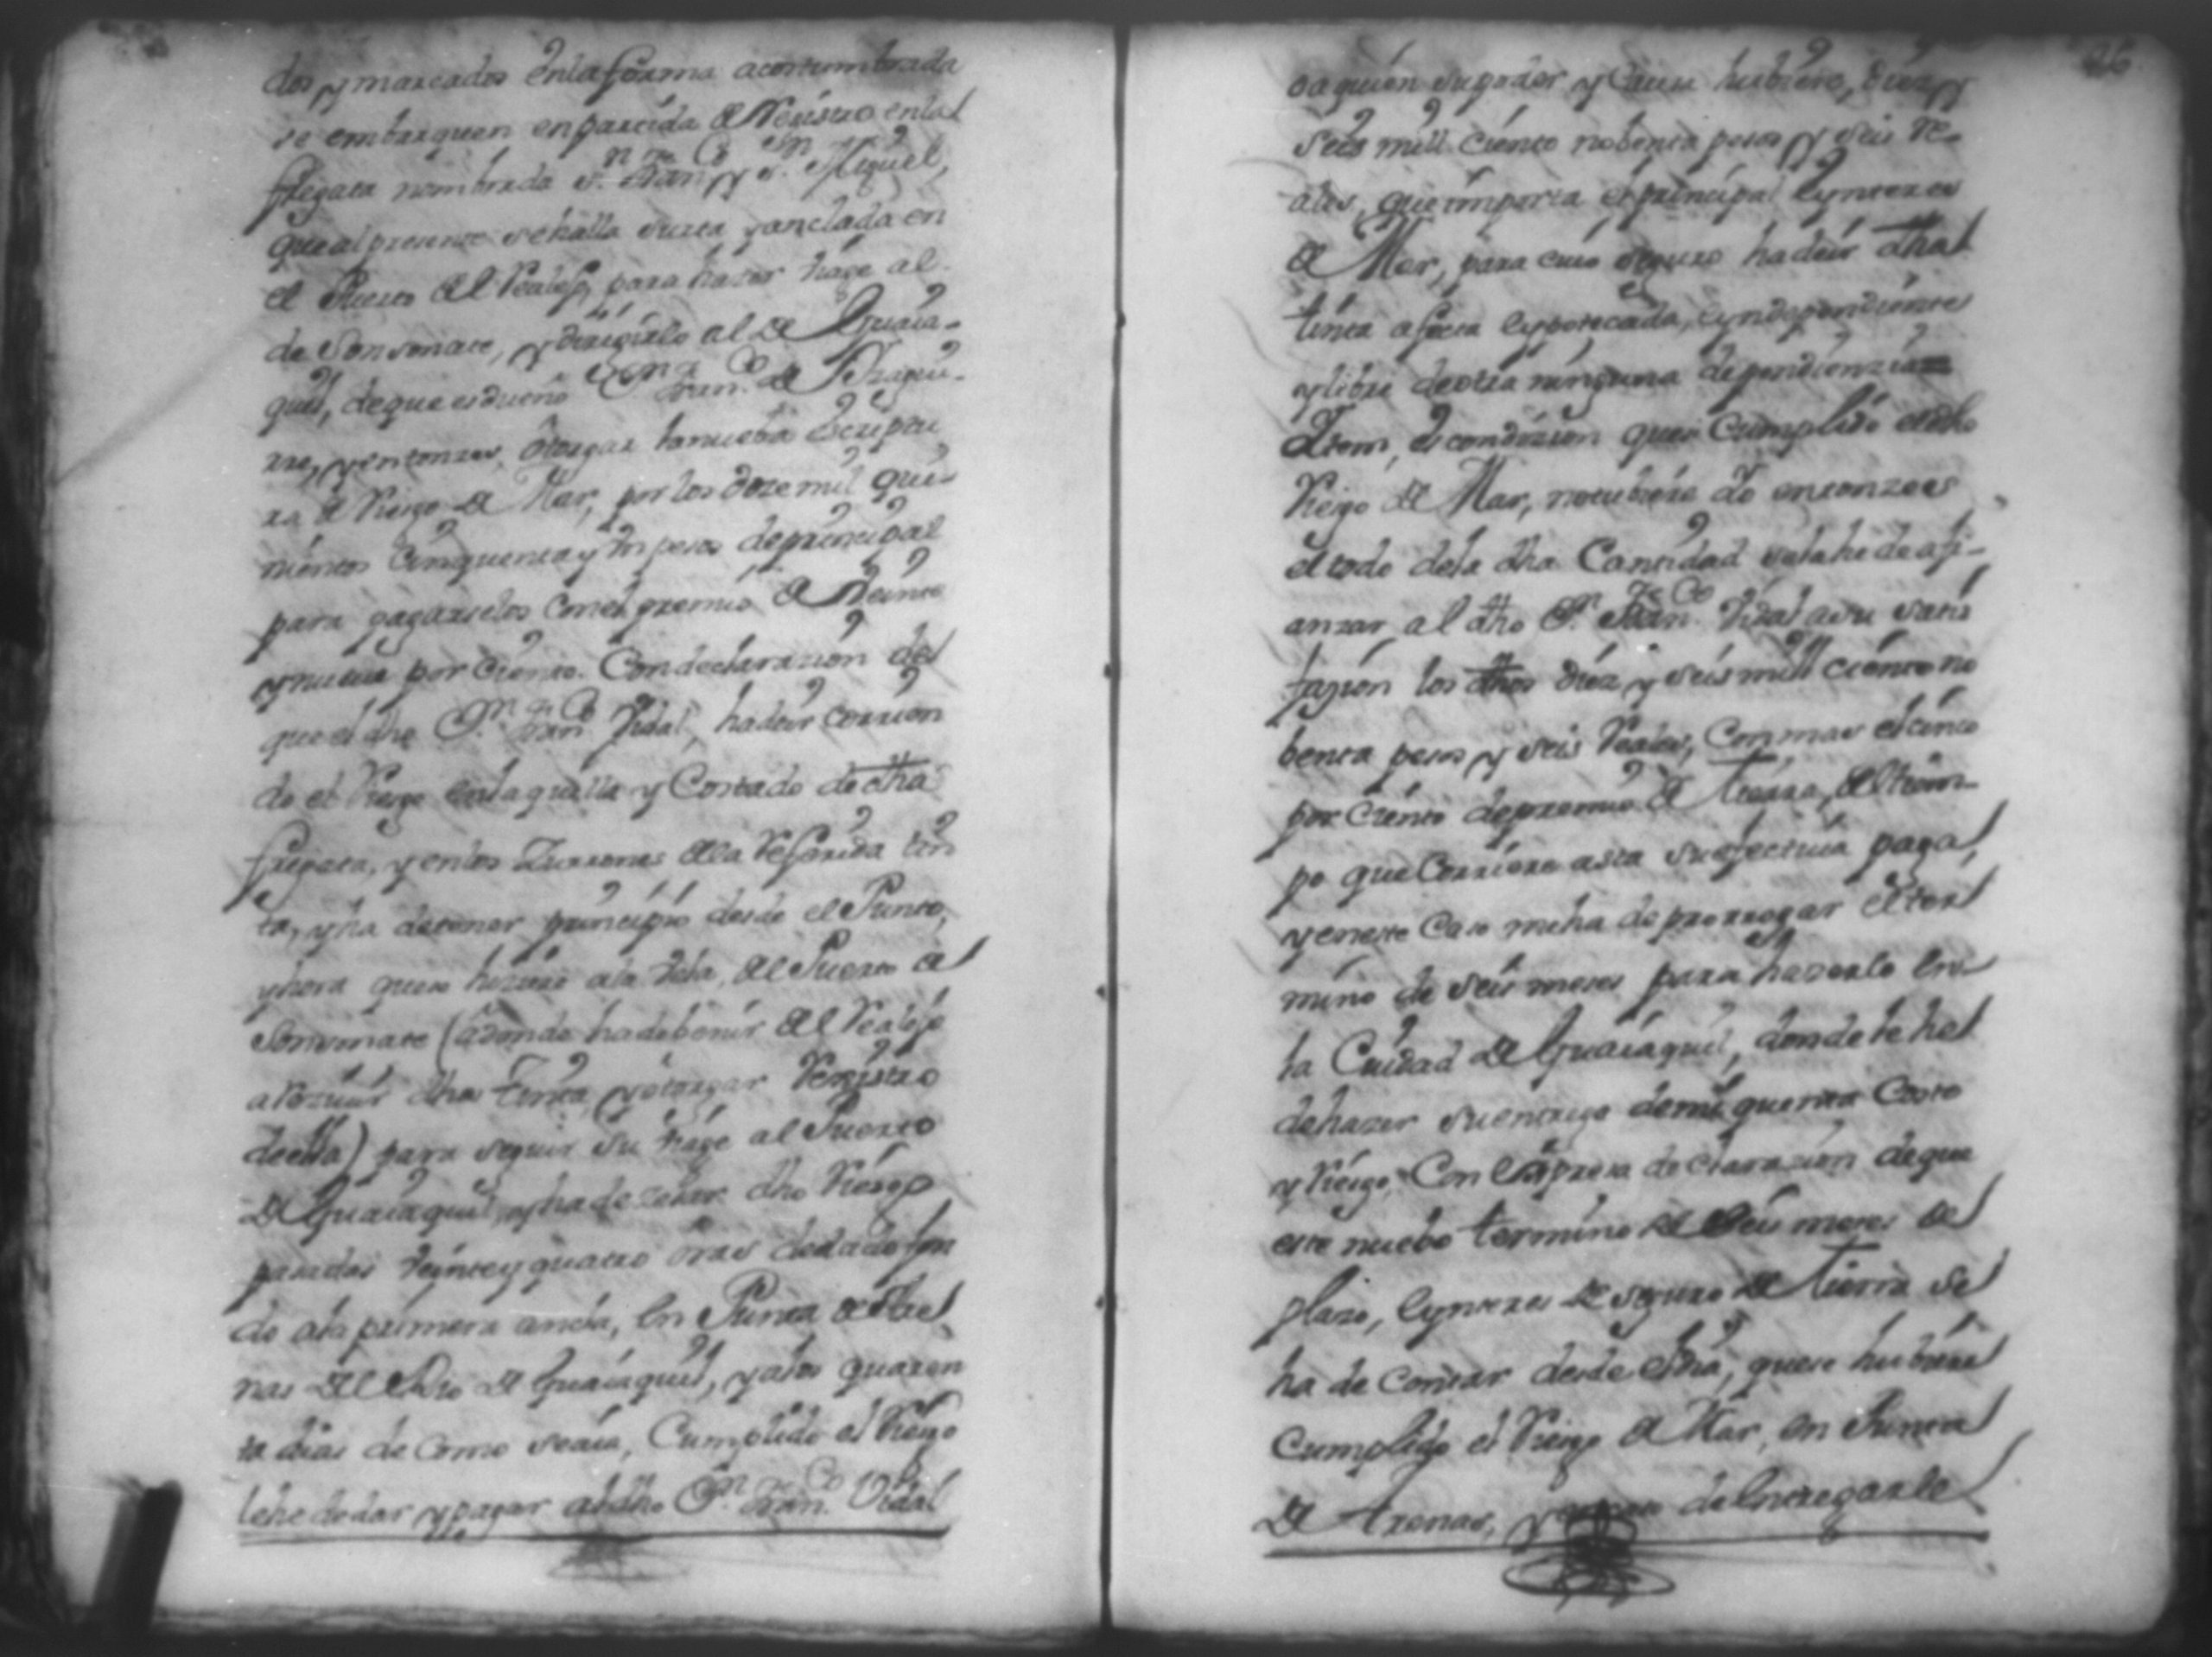 dos y marcados enla forma acostumbrada
se embarquen en partida de Rexistro enla
fregata nombrada Sn. Franco y Sn. Miguel,
que al presente se halla surta y anclada en
el Puerto del Realejo, para hazer viage al
de Sonsonate, y dirigirlo al de Guaia-
quil, de que es dueño Dn. Franco de
y entonzes, otorgar la nueba escriptu
ra de Riesgo de Mar, por los doze mil qui-
nientos cinquenta y un pesos de principal
para pagarselos con el premio de Veinte
y nueue por Ciento. Con declarazion de
que el dho Dn. Franco Vidal, ha de ir corrien
do el Riesgo en la quilla y Costado de dha
fregata, y en los Zurrones de la Referida tin
ta, y ha de tener principio desde el Punto,
y hora que se hiziere a la Vela, del Puerto de
Sonsonate (a donde ha de benir del Realejo
a Reziuir dha tinta, y otorgar Rexistro
de ella) para seguir su viage al Puerto
de Guaiaquil, y ha de zesar dho Riesgo
pasadas veinte y quatro oras de dado fon
do a la primera ancla, en Punta de Are
nas del Rio de Guaiaquil, y a los quaren
ta dias de como seaia, Cumplido el Riesgo
le he de dar y pagar al dho Dn. Franco Vidal
96
o a quien su poder y Causa hubiere, diez y
seis mill ciento nobenta pesos y seis re-
ales, que importa el principal e ynteres
de Mar, para cuio seguro ha de ir dha
tinta afecta e ypotecada, e yndependiente
y libre de otra ninguna dependienzia=
Item, es condizion que si Cumplido el dho
Riesgo de Mar, no tubiere Yo entonzes
el todo de la dha Cantidad se la he de afi-
anzar al dho Dn. Franco Vidal a su satis
fazion los dhos diez y seis mill ciento no
benta pesos y seis Reales, Con mas el cinco
por Ciento de premio de tierra, del tiem-
po que Corriere asta su efectiua paga,
y en este Caso me ha de prorrogar el ter
mino de seis meses para hazerlo en
la Ciudad de Guaiaquil, donde le he
de hazer su entrego de mi quenta Costo
y Riesgo, Con expresa declarazion de que
este nuebo termino de seis meses de
plazo, e ynteres de seguro de tierra se
ha de Contar desde el dia, que se hubiere
Cumplido el Riesgo de Mar, en Punta
de Arenas, y de Entregarle